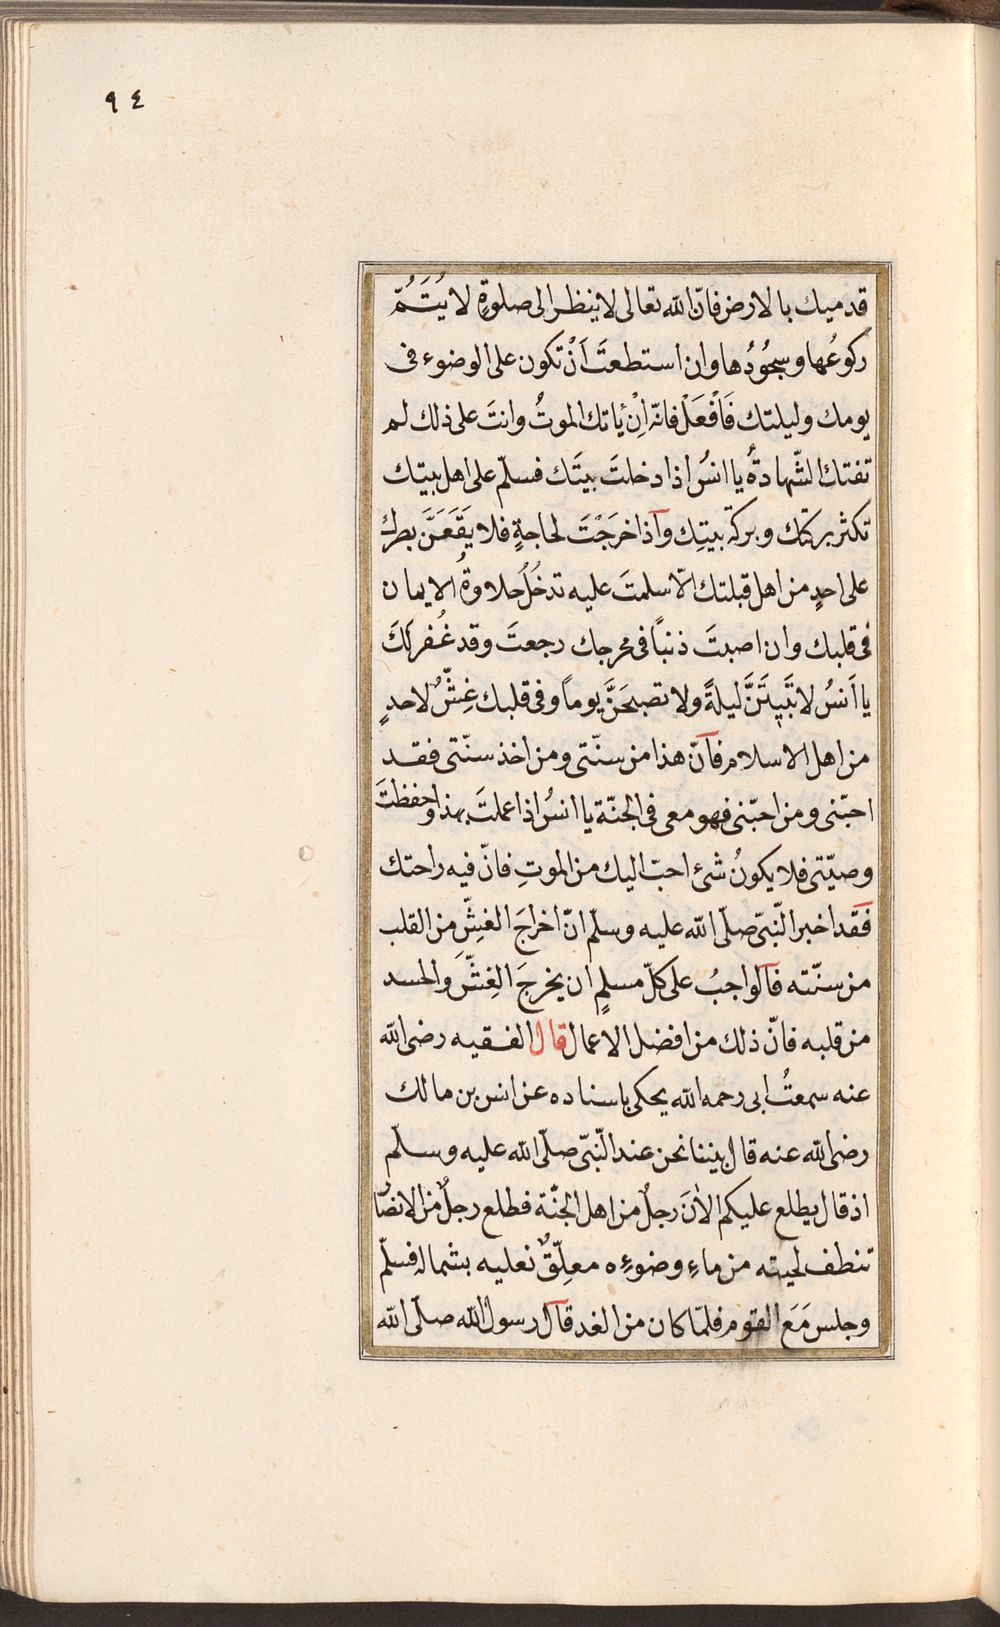 ٩٤
قدميك بالارض فانّ الله تعالى لا ينظر الى صلوةٍ لا يُتَمُّ
ركوعُها وسجُودُها وان استطعتَ اَنْ تكون على الوضوء فى
يومك وليلتك فَافْعَلْ فانّه اِنْ يأتك الموتُ وانتَ على ذلك لم
تفتك الشّهادةُ يا انسُ اذا دخلتَ بيتَك فسلّم على اهل بيتِك
تكثر بركتك وبركة بيتِك وآذا خرَجْتَ لحاجةٍ فلا يَقَعَنَّ بصرك
على احدٍ من اهل قبلتك الّا سلمتَ عليه تدخُلُ حلاوةُ الايمان
فى قلبك وان اصبتَ ذنباً فى مخرجك رجعتَ وقد غُفر لَكَ
يا اَنسُ لا تَبيتَنَّ ليلةً ولا تصبحَنَّ يوماً وفى قلبك غِشٌّ لاحدٍ
من اهل الاسلام فآنّ هذا من سنّتى ومن اخذ سنّتى فقد
احبّنى ومن احبّنى فهو معى فى الجنّة يا انسُ اذا عملتَ بهذا وحفظتَ
وصيّتى فلا يكونُ شئ احبّ اليك من الموتِ فانّ فيه راحتك
فقد اخبر النّبىّ صلّى الله عليه وسلّم انّ اخراجَ الغشِّ من القلب
من سنّته فالواجبُ على كلّ مسلمٍ ان يخرجَ الغِشَّ والحسد
من قلبه فانّ ذلك من افضل الاعمال قال الفقيه رضى الله
عنه سمعتُ ابى رحمه الله يحكى باسناده عن انس بن مالك
رضى الله عنه قال بيننا نحن عند النّبىّ صلّى الله عليه وسلّم
اذ قال يطلع عليكم الاٰنَ رجلٌ من اهل الجنّة فطلع رجلٌ من الانصار
تنطف لحيته من ماءِ وضوءِه معلِّقٌ نعليه بشماله فسلّم
وجلس مَعَ القوم فلمّا كان من الغد قآل رسول الله صلّى الله